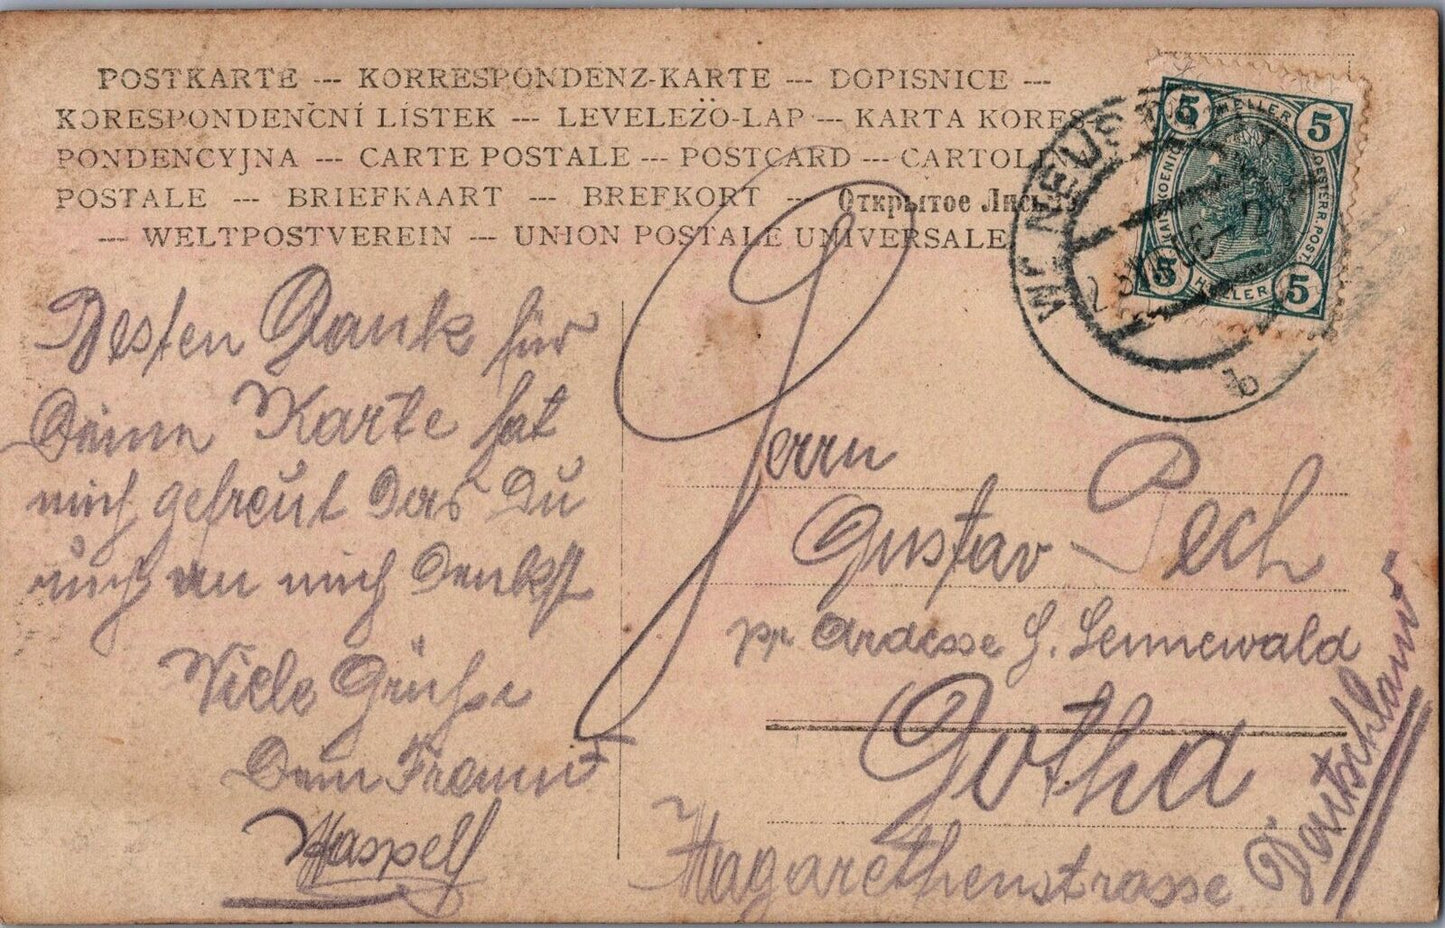 POSTKARTE --- KORRESPONDENZ-KARTE --- DOPISNICE ---
KORESPONDENČNÍ LÍSTEK --- LEVELEZŐ-LAP --- KARTA KORES-
PONDENCYJNA --- CARTE POSTALE --- POSTCARD --- CARTOL
POSTALE --- BRIEFKAART --- BREFKORT --- Открытое
--- WELTPOSTVEREIN --- UNION POSTALE UNIVERSALE
5 HELLER 5
5 HELLER 5
OESTERR. POST
WR. NEUST
b
Besten Dank für
Deine Karte hat
mich gefreut das Du
auch an mich Denkst
Viele Grüße
Dein Freund
Herrn
Gustav Pech
pr Adresse H. Sennewald
Gotha
Magarethenstrasse
Deutschland